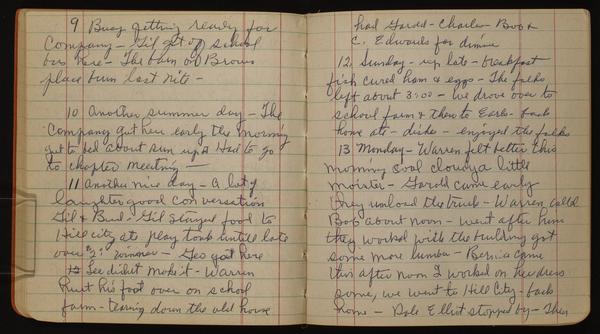 9 Busy getting ready for
Company - Gil got off school
bus here - The barn at Browns
place burn last nite -
10 Another summer day - The
Company got here early the morning
got to bed about sun up & Had to go
to chapter meeting -
11 Another nice day - A lot of
laughter good conversation
Gil & Bud - Gil stayed food to
Hill city ate play took untill late
over - Geo got here
12 See didn't make it - Warren
hurt his foot over on school
farm - tearing down the old house
had Gerold - Charles - Bob &
C. Edwards for dinner
12. Sunday - up late - breakfast
fish cured ham & eggs - The folks
left about 3:00 - we drove over to
school farm & then to Earls - back
home ate - dishes - enjoyed the folks
13 Monday - Warren felt better this
morning cool cloudy a little
moister - Gerold came early
they unload the truck - Warren called
Bob about noon - went after him
they worked with the building got
some more lumber - Bernice came
this after noon I worked on her dress
some, we went to Hill City - back
home - Dale Elliot stopped by - Then